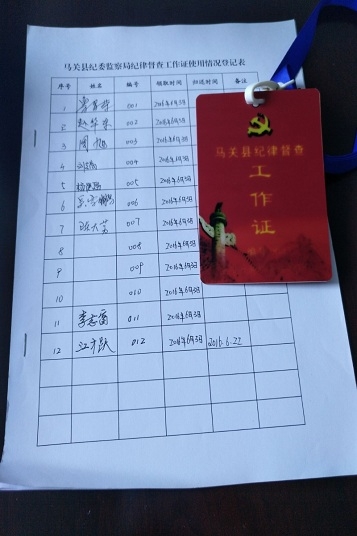 马关县纪委监察局纪律督查工作证使用情况登记表
序号 姓名 编号 领取时间 归还时间 备注
1 001 2016年6月3日
2 002 2016年6月3日
3 003 2016年6月3日
4 004 2016年6月3日
5 005 2016年6月3日
6 006 2016年6月3日
7 007 2016年6月3日
8 008 2016年6月3日
9 009 2016年6月3日
10 010 2016年6月3日
11 李志富 011 2016年6月3日
12 012 2016年6月3日 2016.6.22
马关县纪律督查
工
作
证